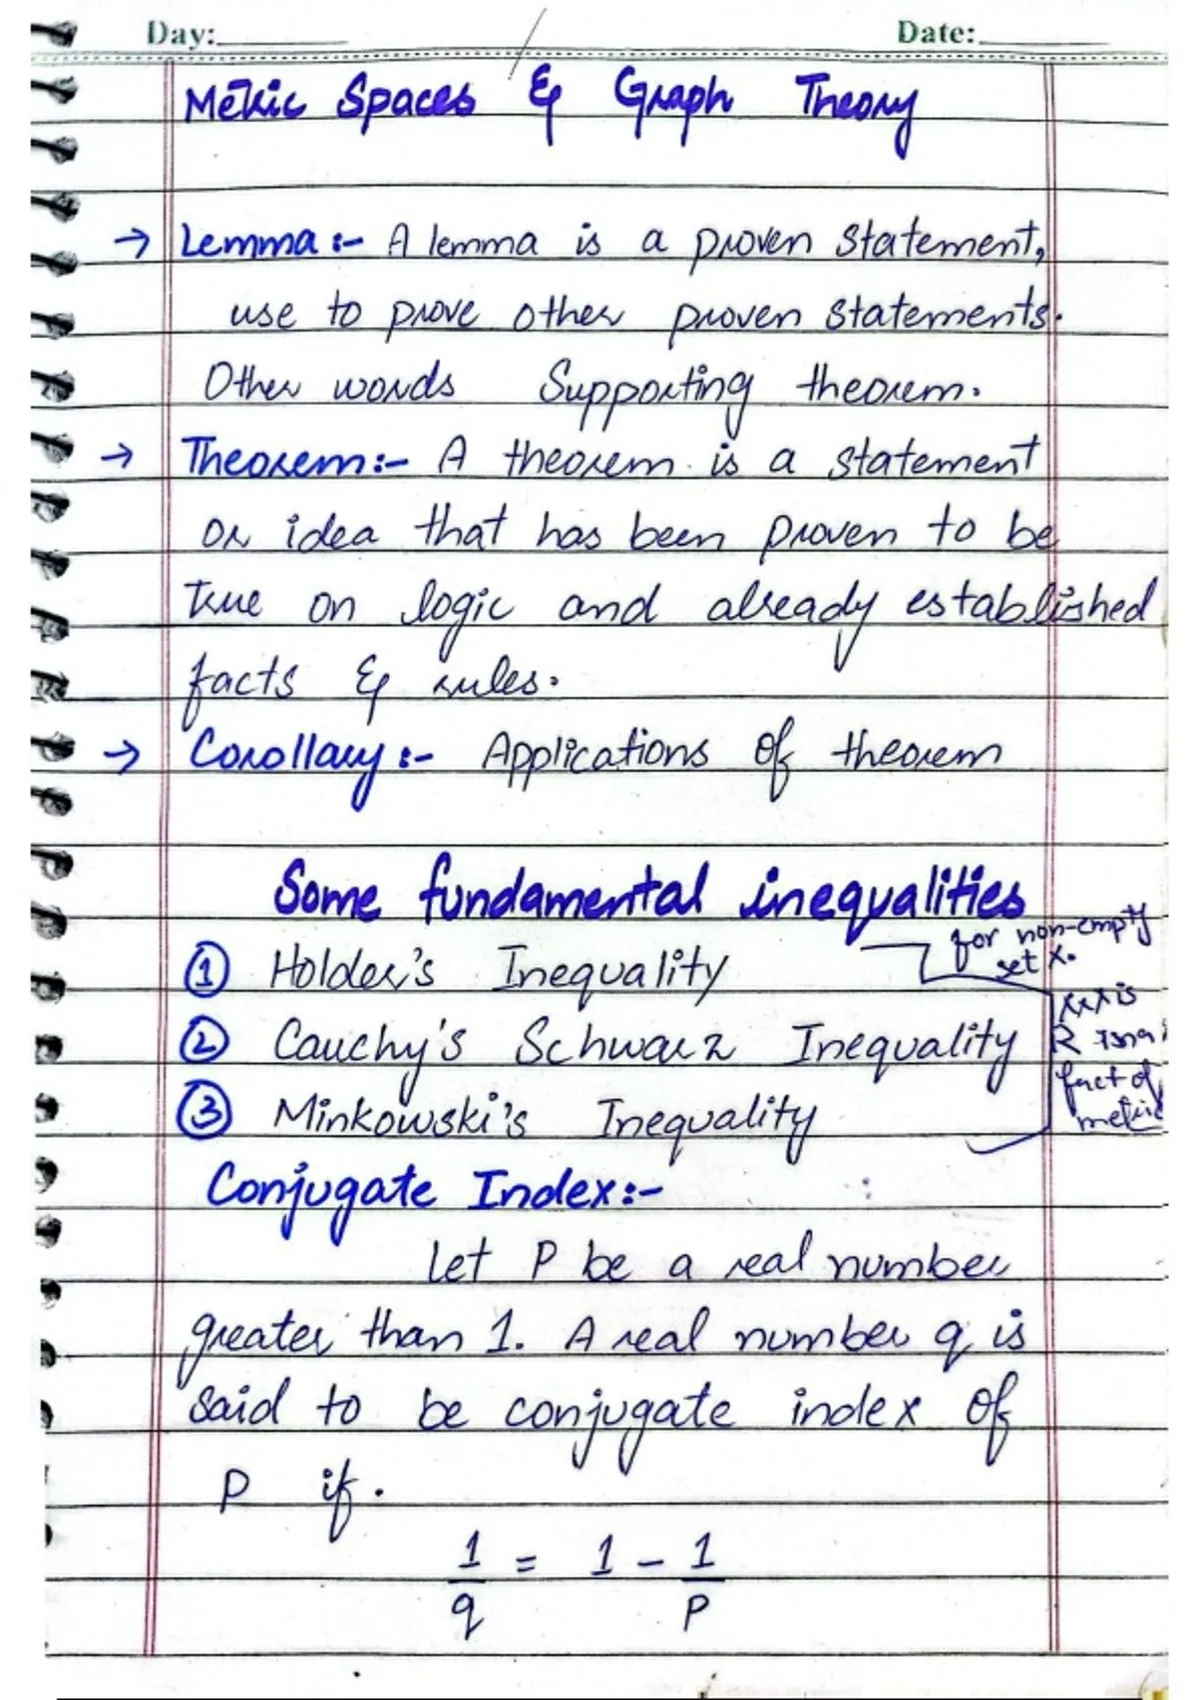 Day:
Date:
Metric Spaces & Graph Theory
→ Lemma :- A lemma is a proven statement,
use to prove other proven statements.
Other words Supporting theorem.
→ Theorem:- A theorem is a statement
or idea that has been proven to be
true on logic and already established
facts & rules.
→ Corollary :- Applications of theorem
Some fundamental inequalities
for non-empty
set X.
① Holder's Inequality
X x X is
② Cauchy's Schwarz Inequality
R
fact of
③ Minkowski's Inequality
metric
Conjugate Index:-
Let P be a real number
greater than 1. A real number q is
said to be conjugate index of
P if.
1/q = 1 - 1/P